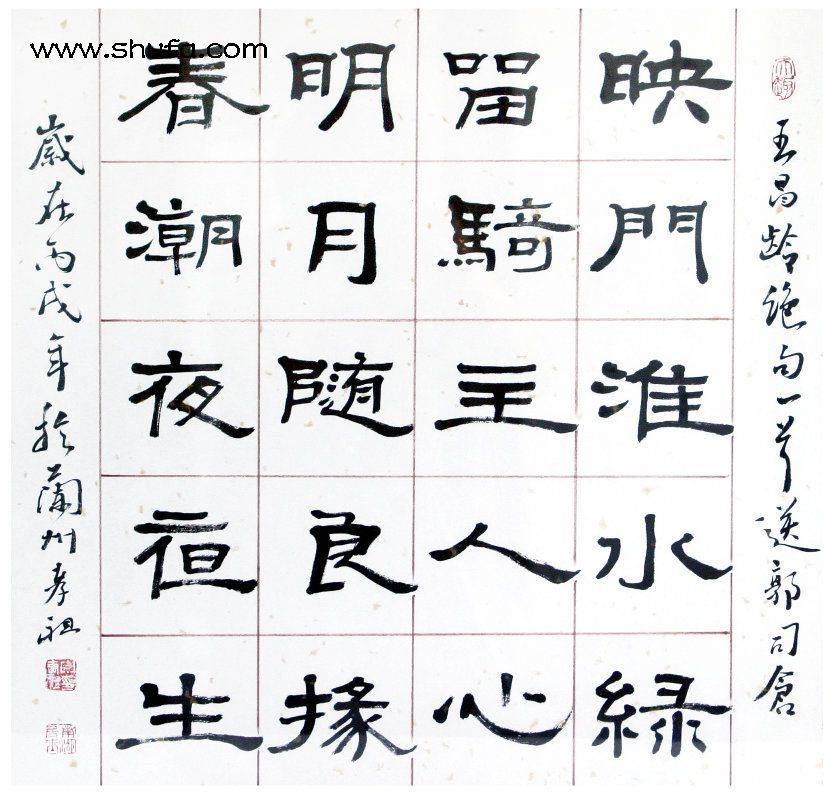 www.shufa.com
王昌齡絕句一首送郭司倉
映門淮水緑
留騎主人心
明月随良掾
春潮夜亱生
歲在丙戌年於蘭州孝祖